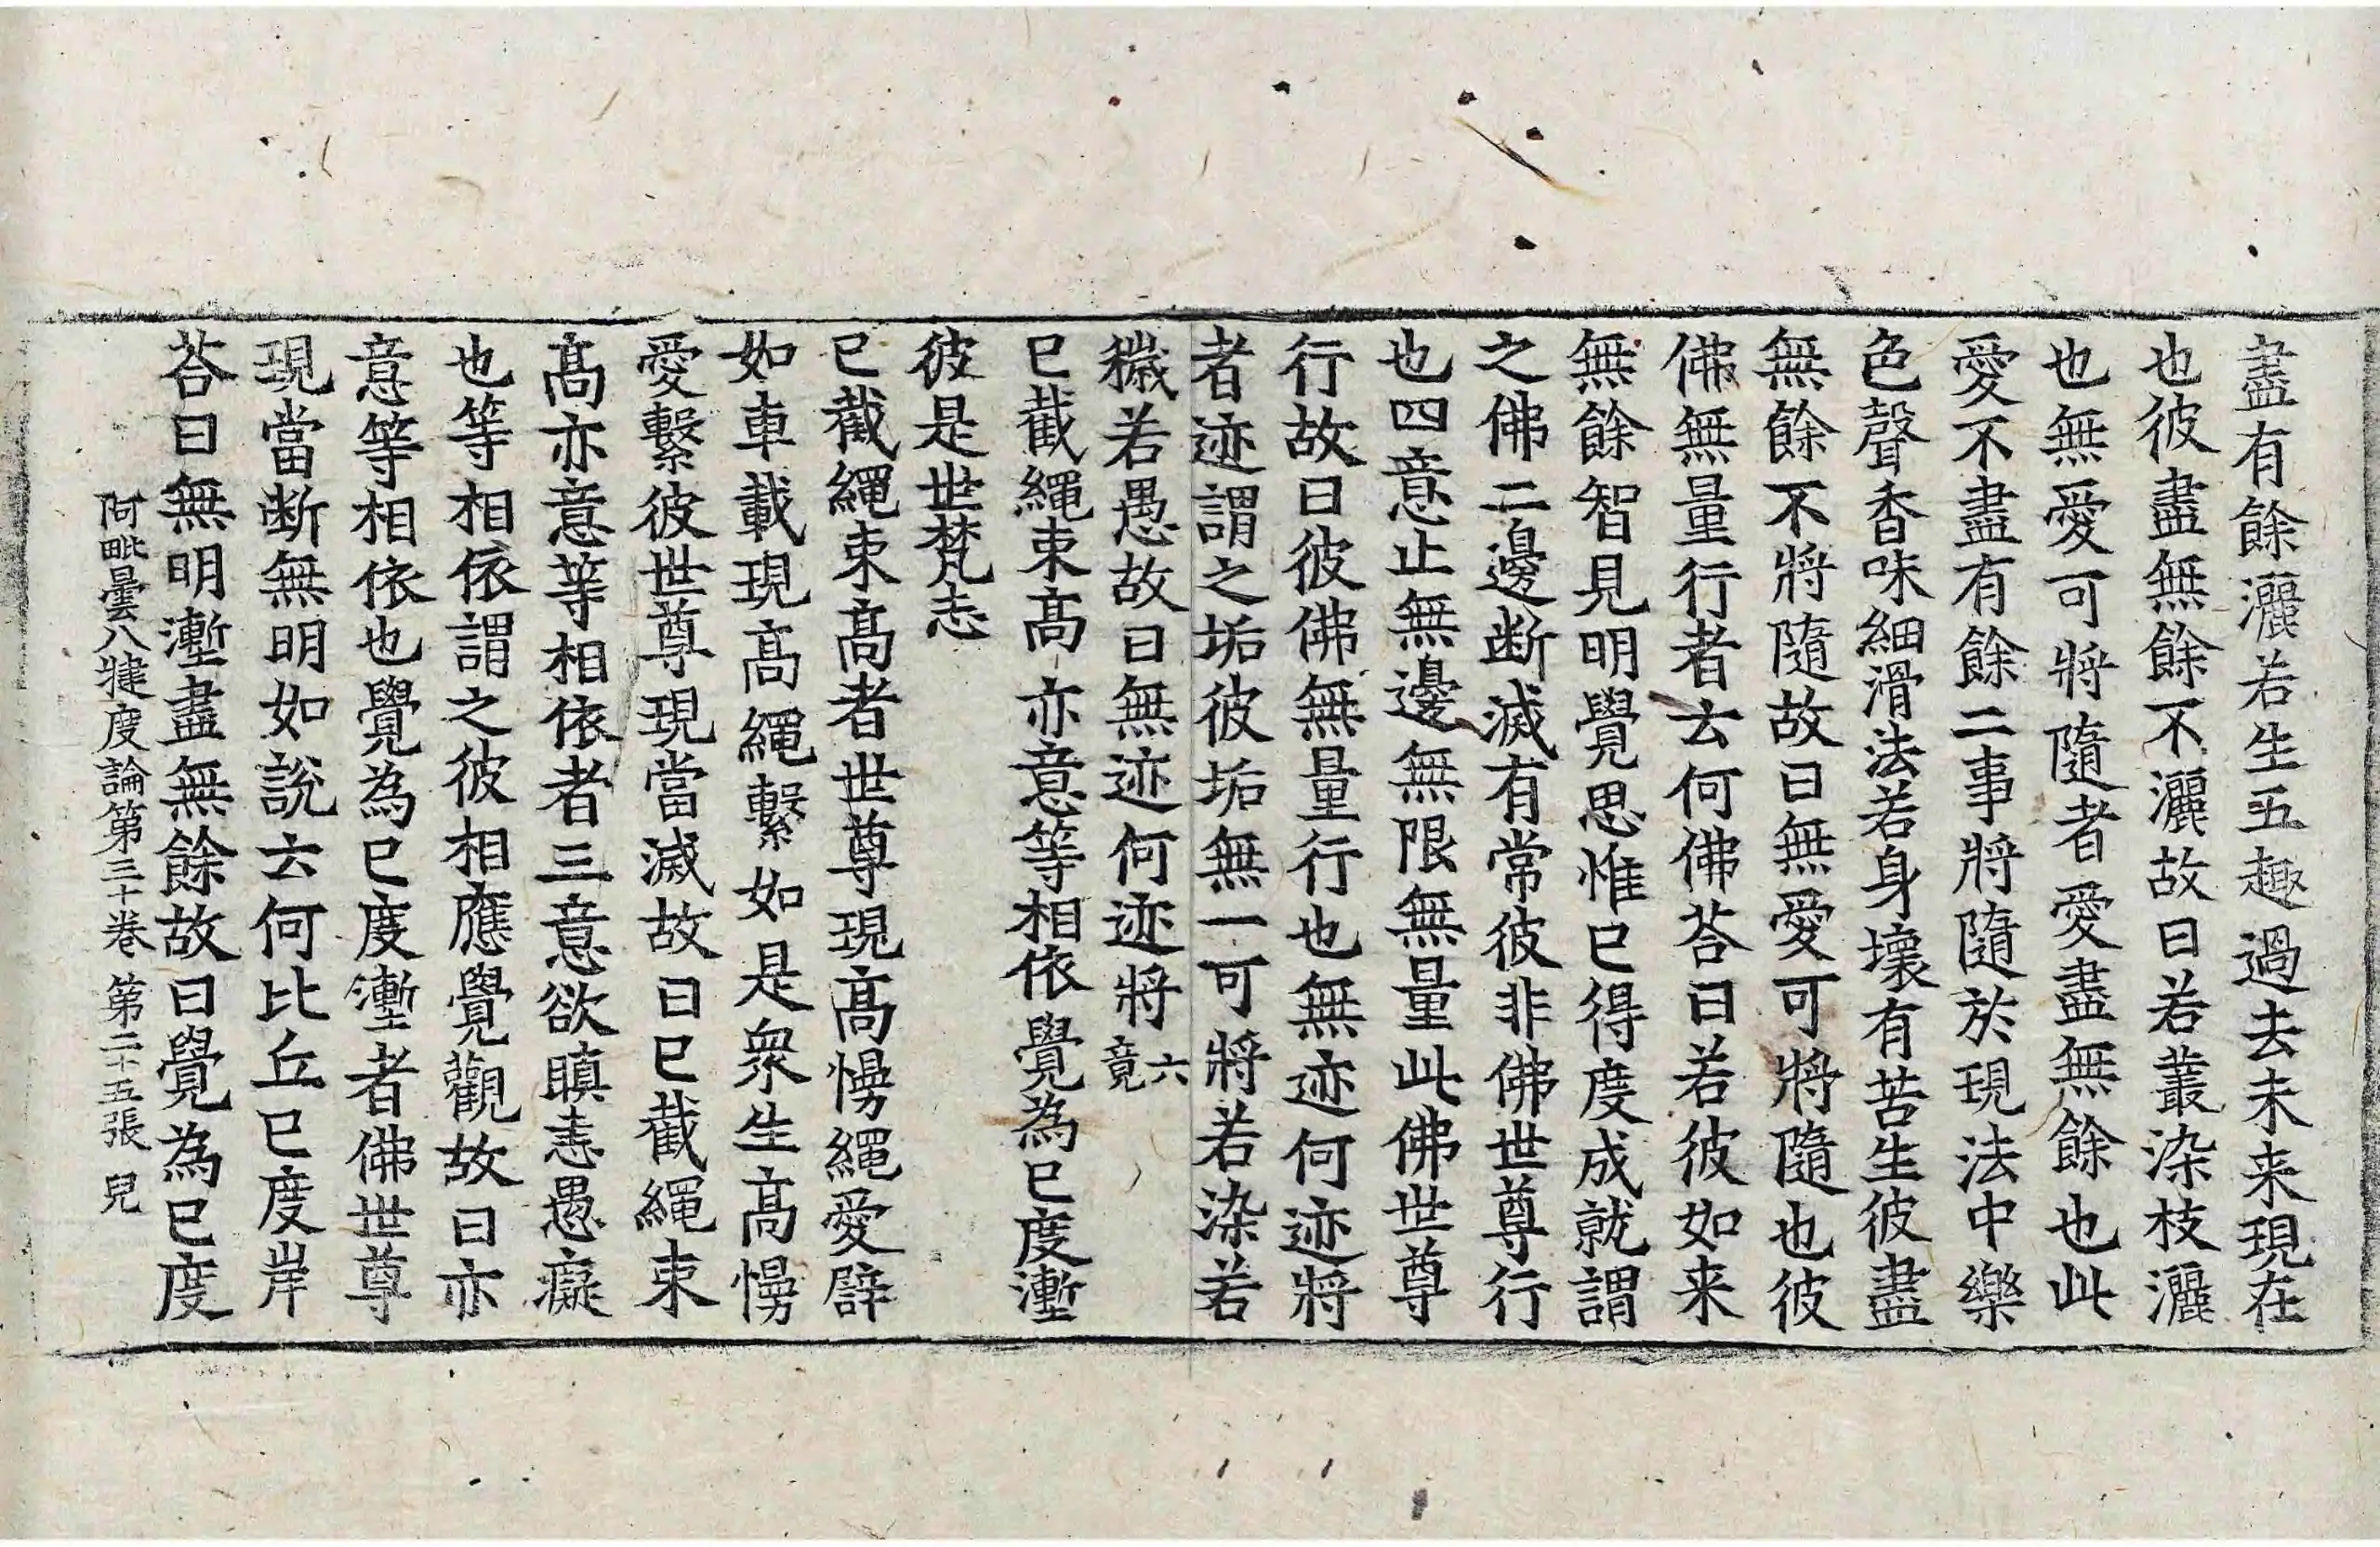 盡有餘灑若生五趣過去未来現在
也彼盡無餘不灑故曰若叢染枝灑
也無愛可將隨者愛盡無餘也此
愛不盡有餘二事將隨於現法中樂
色聲香味細滑法若身壞有苦生彼盡
無餘不將隨故曰無愛可將隨也彼
佛無量行者云何佛荅曰若彼如来
無餘智見明覺思惟已得度成就謂
之佛二邊断滅有常彼非佛世尊行
也四意止無邊無限無量此佛世尊
行故曰彼佛無量行也無迹何迹將
者迹謂之垢彼垢無一可將若染若
穢若愚故曰無迹何迹將六竟
已截繩束高亦意等相依覺為已度塹
彼是世梵志
已截繩束高者世尊現高慢繩愛辟
如車載現高繩繫如是衆生高慢
愛繫彼世尊現當滅故曰已截繩束
高亦意等相依者三意欲瞋恚愚癡
也等相依謂之彼相應覺觀故曰亦
意等相依也覺為已度塹者佛世尊
現當断無明如說云何比丘已度岸
荅曰無明塹盡無餘故曰覺為已度
阿毗曇八犍度論第三十卷 第二十五張 兒